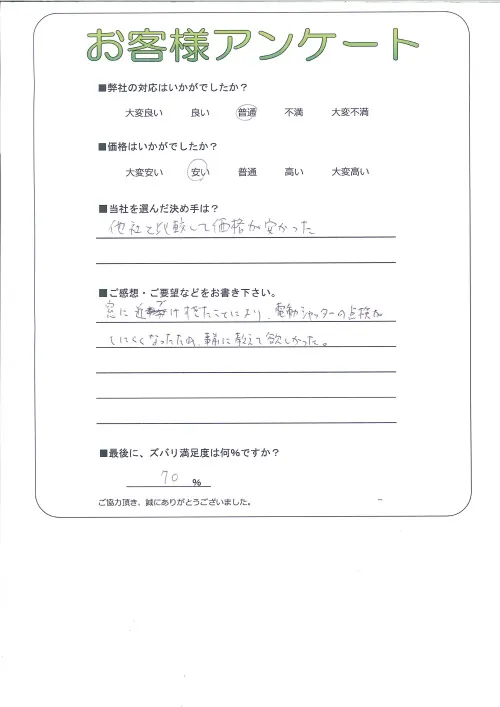 お客様アンケート
■弊社の対応はいかがでしたか？
大変良い 良い 普通 不満 大変不満
■価格はいかがでしたか？
大変安い 安い 普通 高い 大変高い
■当社を選んだ決め手は？
他社と比較して価格が安かった
■ご感想・ご要望などをお書き下さい。
窓に近づけ過ぎたことにより、電動シャッターの点検が
しにくくなったため、事前に教えて欲しかった。
■最後に、ズバリ満足度は何％ですか？
70 %
ご協力頂き、誠にありがとうございました。